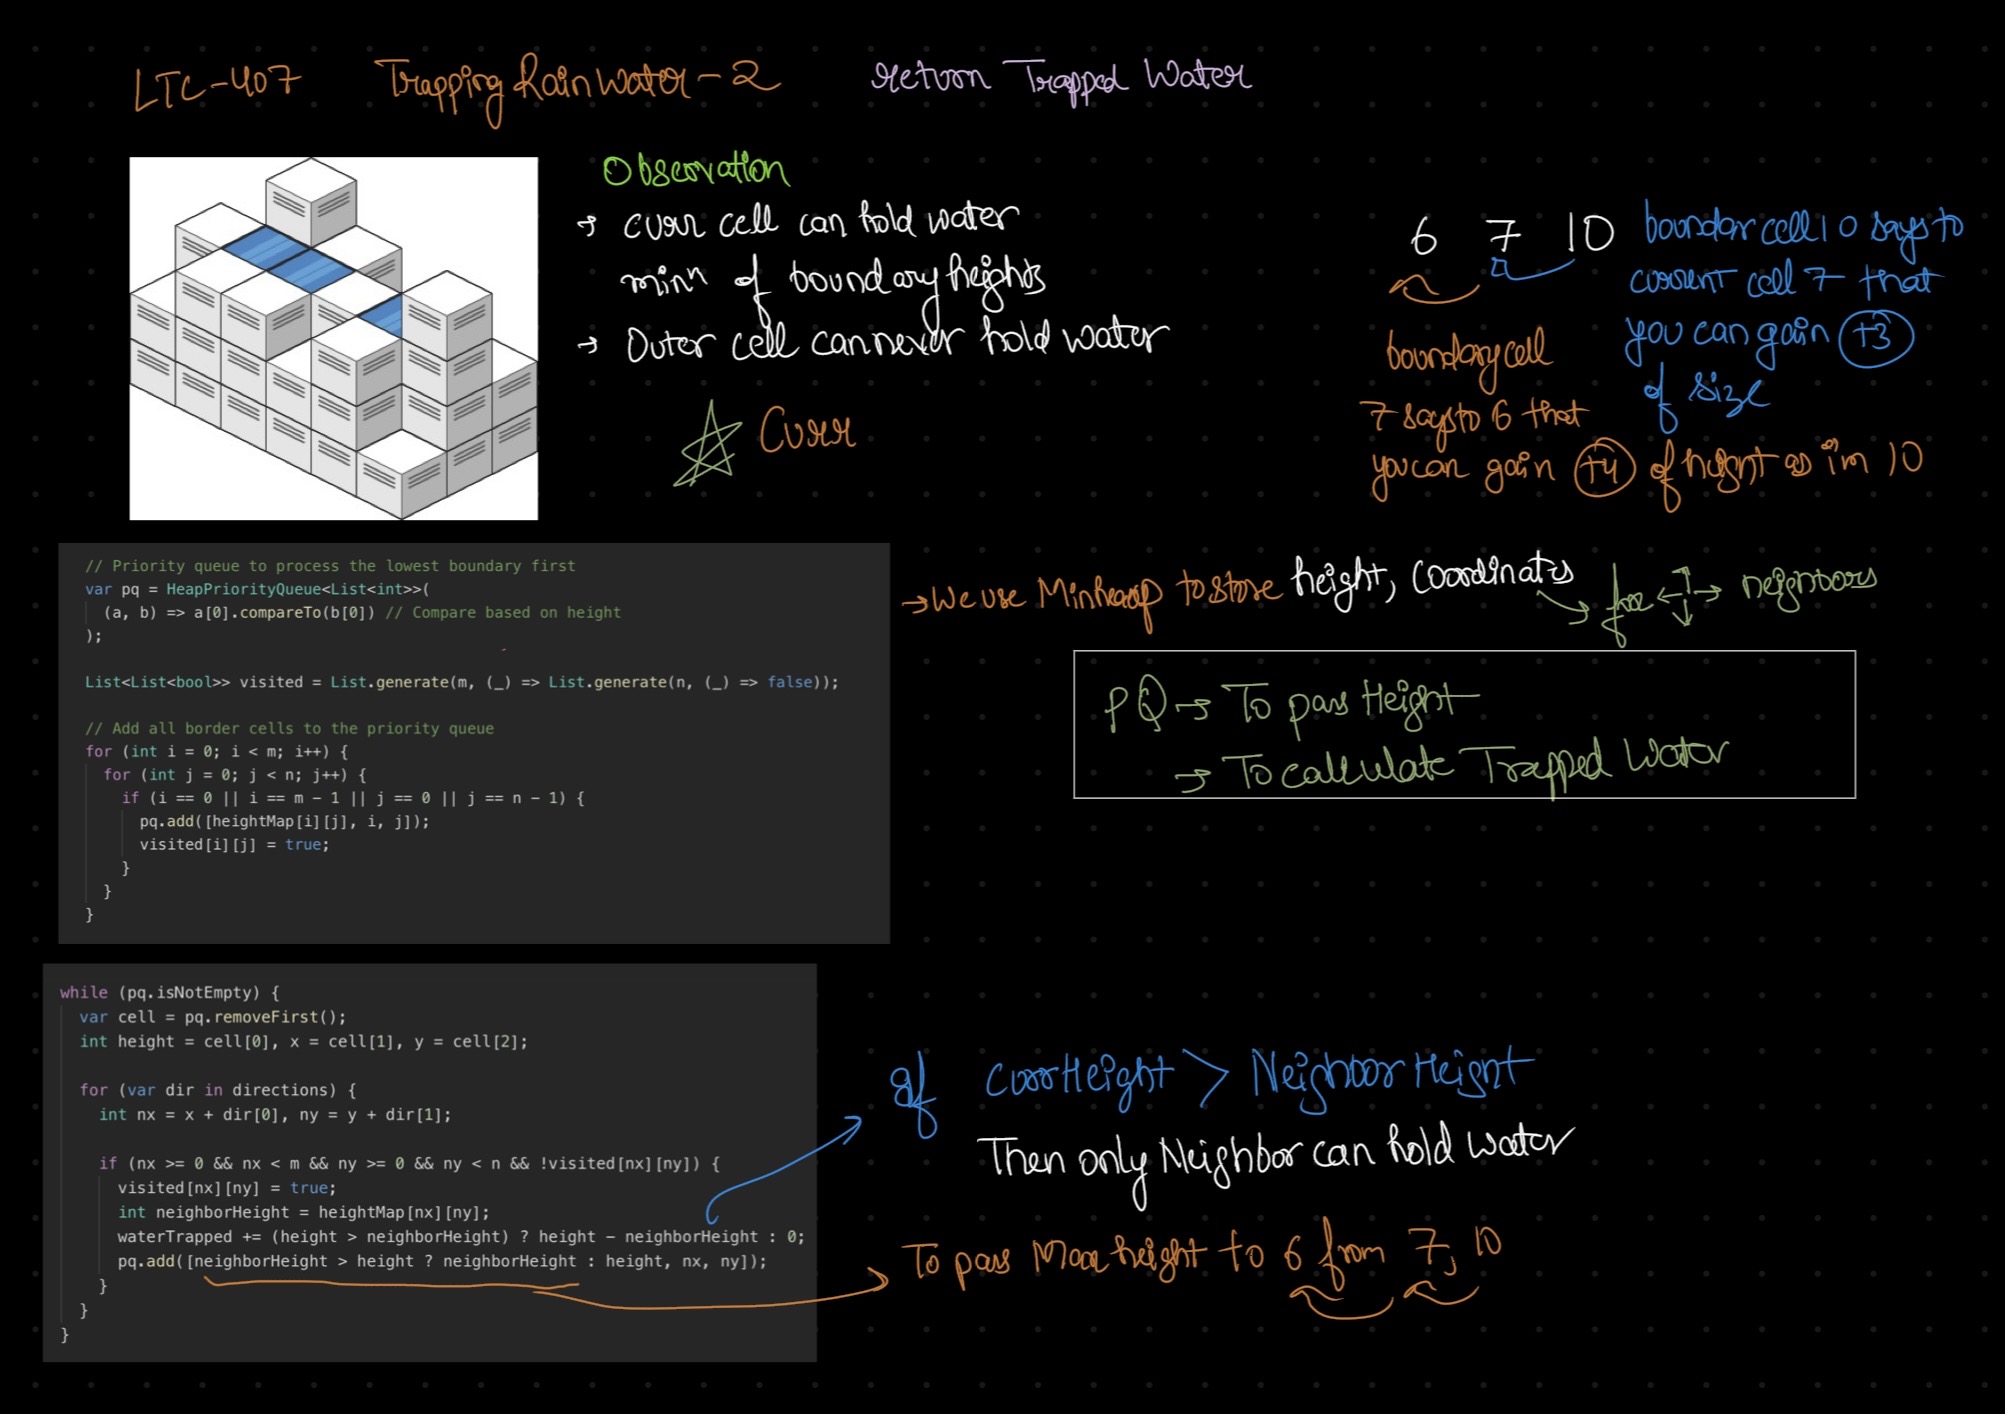 LTC-407 Trapping Rain Water-2 return Trapped Water
Observation
→ curr cell can hold water
minⁿ of boundary heights
→ Outer cell can never hold water
Curr
6 7 10
boundar cell 10 says to
current cell 7 that
you can gain +3
of size
boundary cell
7 says to 6 that
you can gain +4 of height as im 10
// Priority queue to process the lowest boundary first
var pq = HeapPriorityQueue<List<int>>(
(a, b) => a[0].compareTo(b[0]) // Compare based on height
);
List<List<bool>> visited = List.generate(m, (_) => List.generate(n, (_) => false));
// Add all border cells to the priority queue
for (int i = 0; i < m; i++) {
for (int j = 0; j < n; j++) {
if (i == 0 || i == m - 1 || j == 0 || j == n - 1) {
pq.add([heightMap[i][j], i, j]);
visited[i][j] = true;
}
}
}
→ We use Minheap to store height, Coordinates → for neighbors
PQ → To pass Height
→ To calculate Trapped Water
while (pq.isNotEmpty) {
var cell = pq.removeFirst();
int height = cell[0], x = cell[1], y = cell[2];
for (var dir in directions) {
int nx = x + dir[0], ny = y + dir[1];
if (nx >= 0 && nx < m && ny >= 0 && ny < n && !visited[nx][ny]) {
visited[nx][ny] = true;
int neighborHeight = heightMap[nx][ny];
waterTrapped += (height > neighborHeight) ? height - neighborHeight : 0;
pq.add([neighborHeight > height ? neighborHeight : height, nx, ny]);
}
}
}
If CurrHeight > Neighbor Height
Then only Neighbor can hold water
To pass Max height to 6 from 7, 10